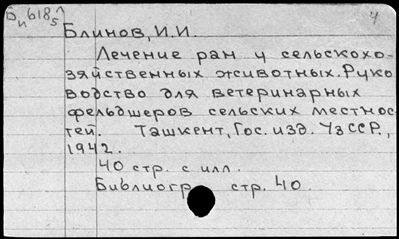 Dи618⁵ 4
Блинов, И.И.
Лечение ран у сельскохо-
зяйственных животных. Руко
водство для ветеринарных
фельдшеров сельских местнос-
тей. Ташкент, Гос. изд. УзССР.,
1942.
40 стр. с илл.
Библиогр стр. 40.